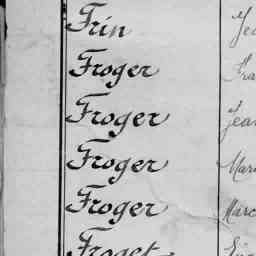 Frin
Froger
Froger Jean
Froger
Froger
Froget